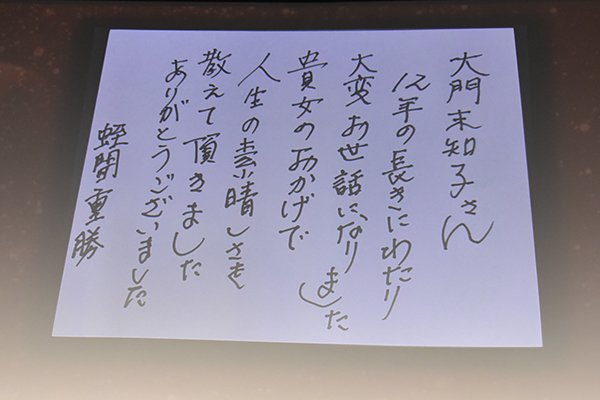 大門未知子さん
12年の長きにわたり
大変お世話になりました
貴女のおかげで
人生の素晴しさを
教えて頂きました
ありがとうございました
蛭間重勝